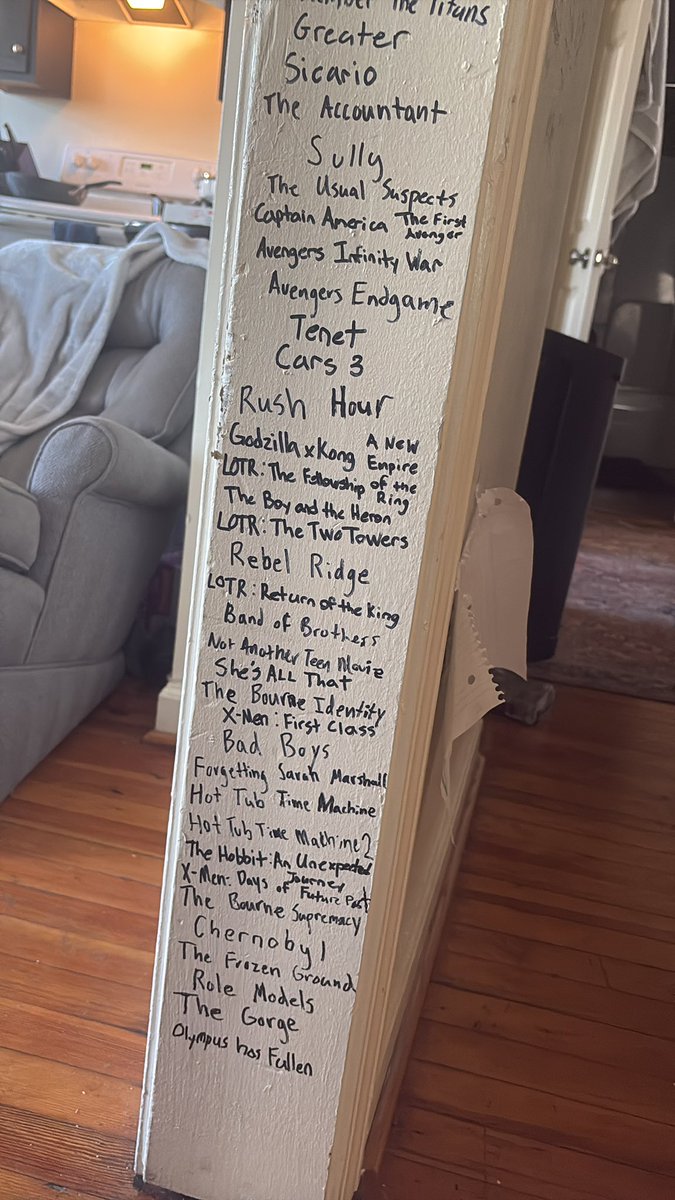 The Titans
Greater
Sicario
The Accountant
Sully
The Usual Suspects
Captain America The First
Avenger
Avengers Infinity War
Avengers Endgame
Tenet
Cars 3
Rush Hour
Godzilla x Kong A New
Empire
LOTR: The Fellowship of the
Ring
The Boy and the Heron
LOTR: The Two Towers
Rebel Ridge
LOTR: Return of the King
Band of Brothers
Not Another Teen Movie
She's ALL That
The Bourne Identity
X-Men: First Class
Bad Boys
Forgetting Sarah Marshall
Hot Tub Time Machine
Hot Tub Time Machine 2
The Hobbit: An Unexpected
Journey
X-Men: Days of Future Past
The Bourne Supremacy
Chernobyl
The Frozen Ground
Role Models
The Gorge
Olympus has Fallen